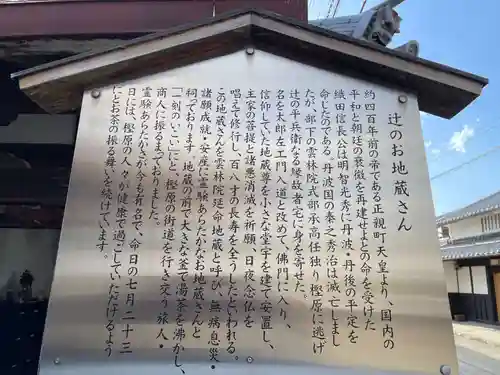 辻のお地蔵さん
約四百年前の帝である正親町天皇より、国内の
平和と朝廷の衰微を再建せよとの命を受けた
織田信長公は明智光秀に丹波・丹後の平定を
命じたのである。丹波国の秦之秀治は滅亡しまし
たが、部下の雲林院式部承高任独り樫原に逃げ
辻の平兵衛なる縁故者宅に身を寄せた。
名を太郎左エ門入道と改めて、佛門に入り、
信仰していた地蔵尊を小さな堂宇を建て安置し、
主家の菩提と諸悪消滅を祈願し、日夜念仏を
唱えて修行し、百八寸の長寿を全うしたといわれる。
この地蔵さんを雲林院延命地蔵と呼び、無病息災・
諸願成就・安産に霊験あらたかなお地蔵さんと
祀っております。地蔵の前で大きな釜で湯茶を沸かし、
「一刻のいこい」にと、樫原の街道を行き交う旅人・
商人に振るまっておりました。
霊験あらたかさが今も有名で、命日の七月二十三
日には、樫原の人々が健康で過ごしていただけるよう
にとお茶の振る舞いを続けています。